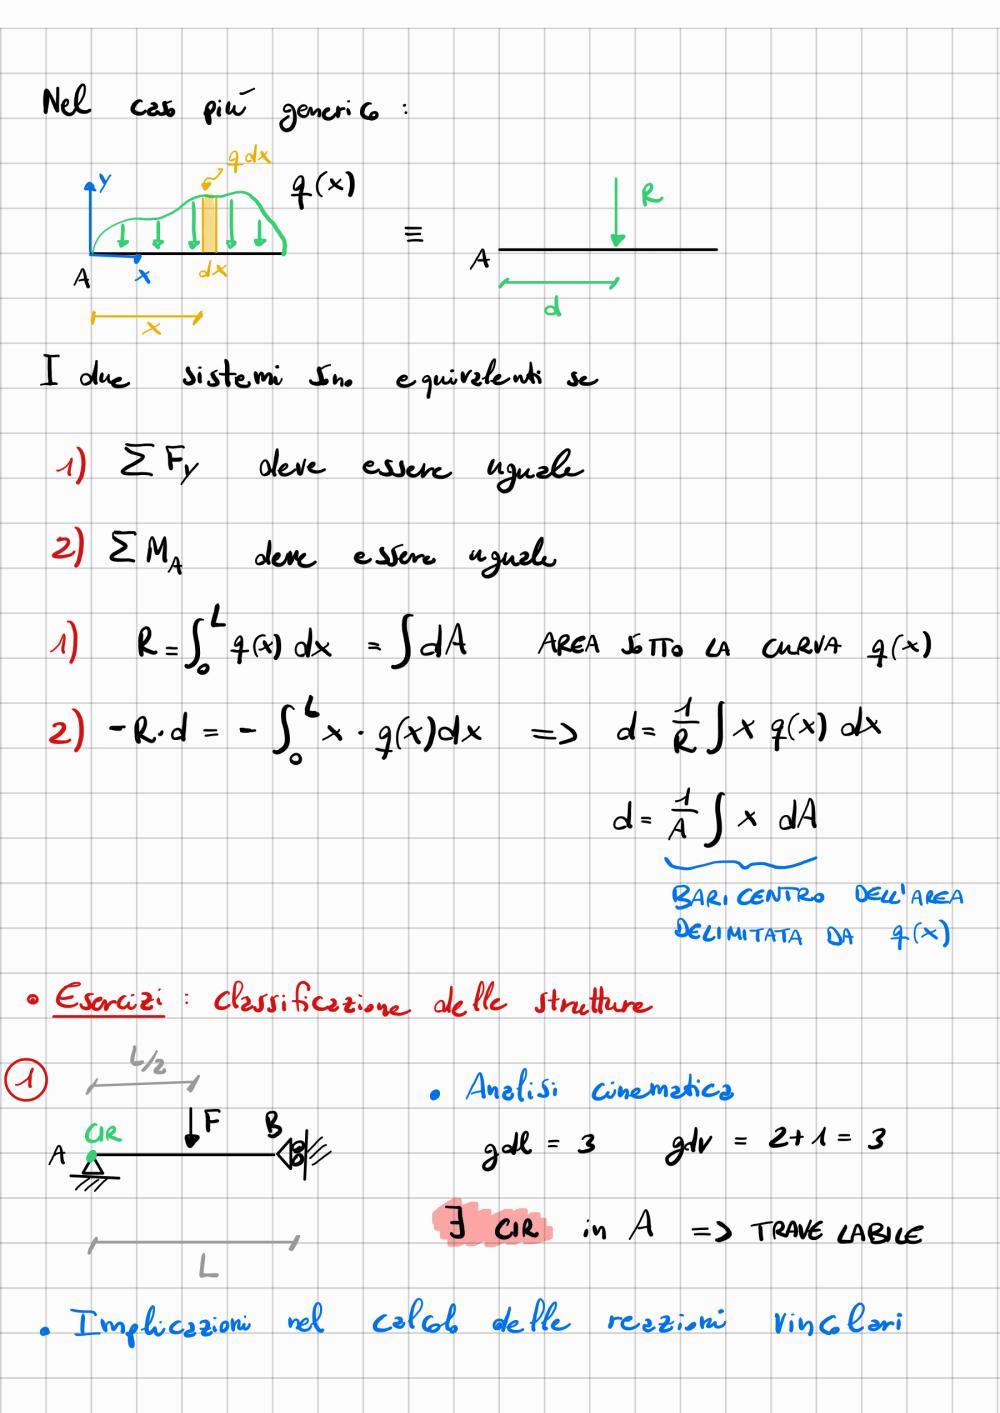 Nel caso più generico :
q dx
y
q(x)
R
≡
A
x
dx
A
d
x
I due sistemi sono equivalenti se
1) ΣF_y deve essere uguale
2) ΣM_A deve essere uguale
1) R = ∫_0^L q(x) dx = ∫ dA AREA SOTTO LA CURVA q(x)
2) -R·d = - ∫_0^L x · q(x)dx => d = 1/R ∫ x q(x) dx
d = 1/A ∫ x dA
BARICENTRO DELL'AREA
DELIMITATA DA q(x)
• Esercizi : classificazione delle strutture
1
L/2
• Analisi cinematica
CIR
F
B
A
gdl = 3 gdv = 2+1 = 3
∃ CIR in A => TRAVE LABILE
L
• Implicazioni nel calcolo delle reazioni vincolari